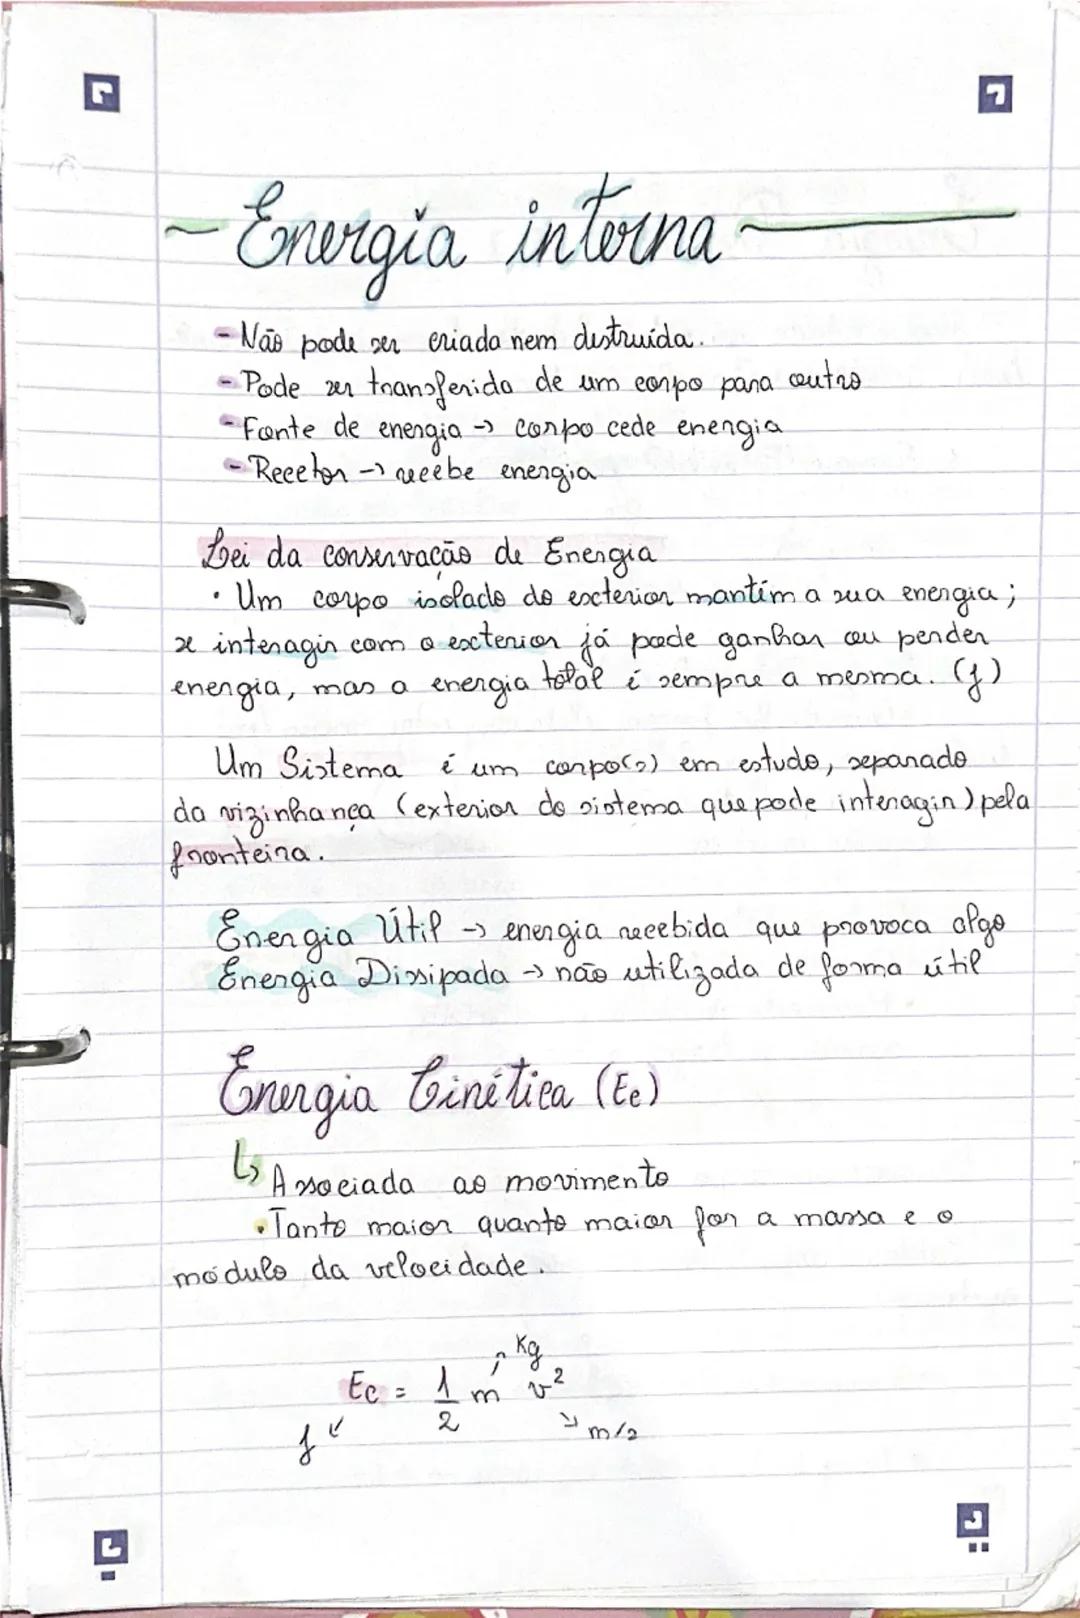 Energia interna
- Não pode ser criada nem destruída.
- Pode ser transferida de um corpo para outro
- Fonte de energia → corpo cede energia
- Recetor → recebe energia
Lei da conservação de Energia
• Um corpo isolado do exterior mantém a sua energia;
se interagir com o exterior já pode ganhar ou perder
energia, mas a energia total é sempre a mesma. (J)
Um Sistema é um corpo(s) em estudo, separado
da vizinhança (exterior do sistema que pode interagir) pela
fronteira.
Energia Útil → energia recebida que provoca algo
Energia Dissipada → não utilizada de forma útil
Energia Cinética (Ec)
↳ Associada ao movimento
• Tanto maior quanto maior for a massa e o
módulo da velocidade.
Kg
Ec = 1/2 m v²
J
m/s